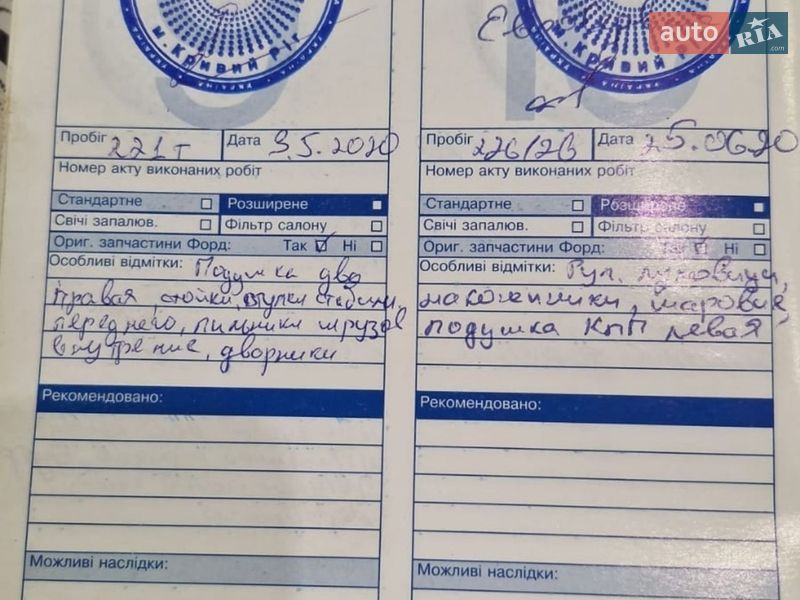 auto RIA .com
м. Кривий Ріг
УКРАЇНА
м. Кривий Ріг
УКРАЇНА
Пробіг 221т Дата 3.5.2020
Номер акту виконаних робіт
Стандартне Розширене
Свічі запалюв. Фільтр салону
Ориг. запчастини Форд: Так Ні
Особливі відмітки: Подушка две
правая стойки, втулки стабили.
переднего, пильники шрузов
внутрение, дворники
Рекомендовано:
Можливі наслідки:
Пробіг 226/2В Дата 25.0620
Номер акту виконаних робіт
Стандартне Розширене
Свічі запалюв. Фільтр салону
Ориг. запчастини Форд: Так Ні
Особливі відмітки: Рул.
наконечники, шаровые,
подушка КПП левая
Рекомендовано:
Можливі наслідки: